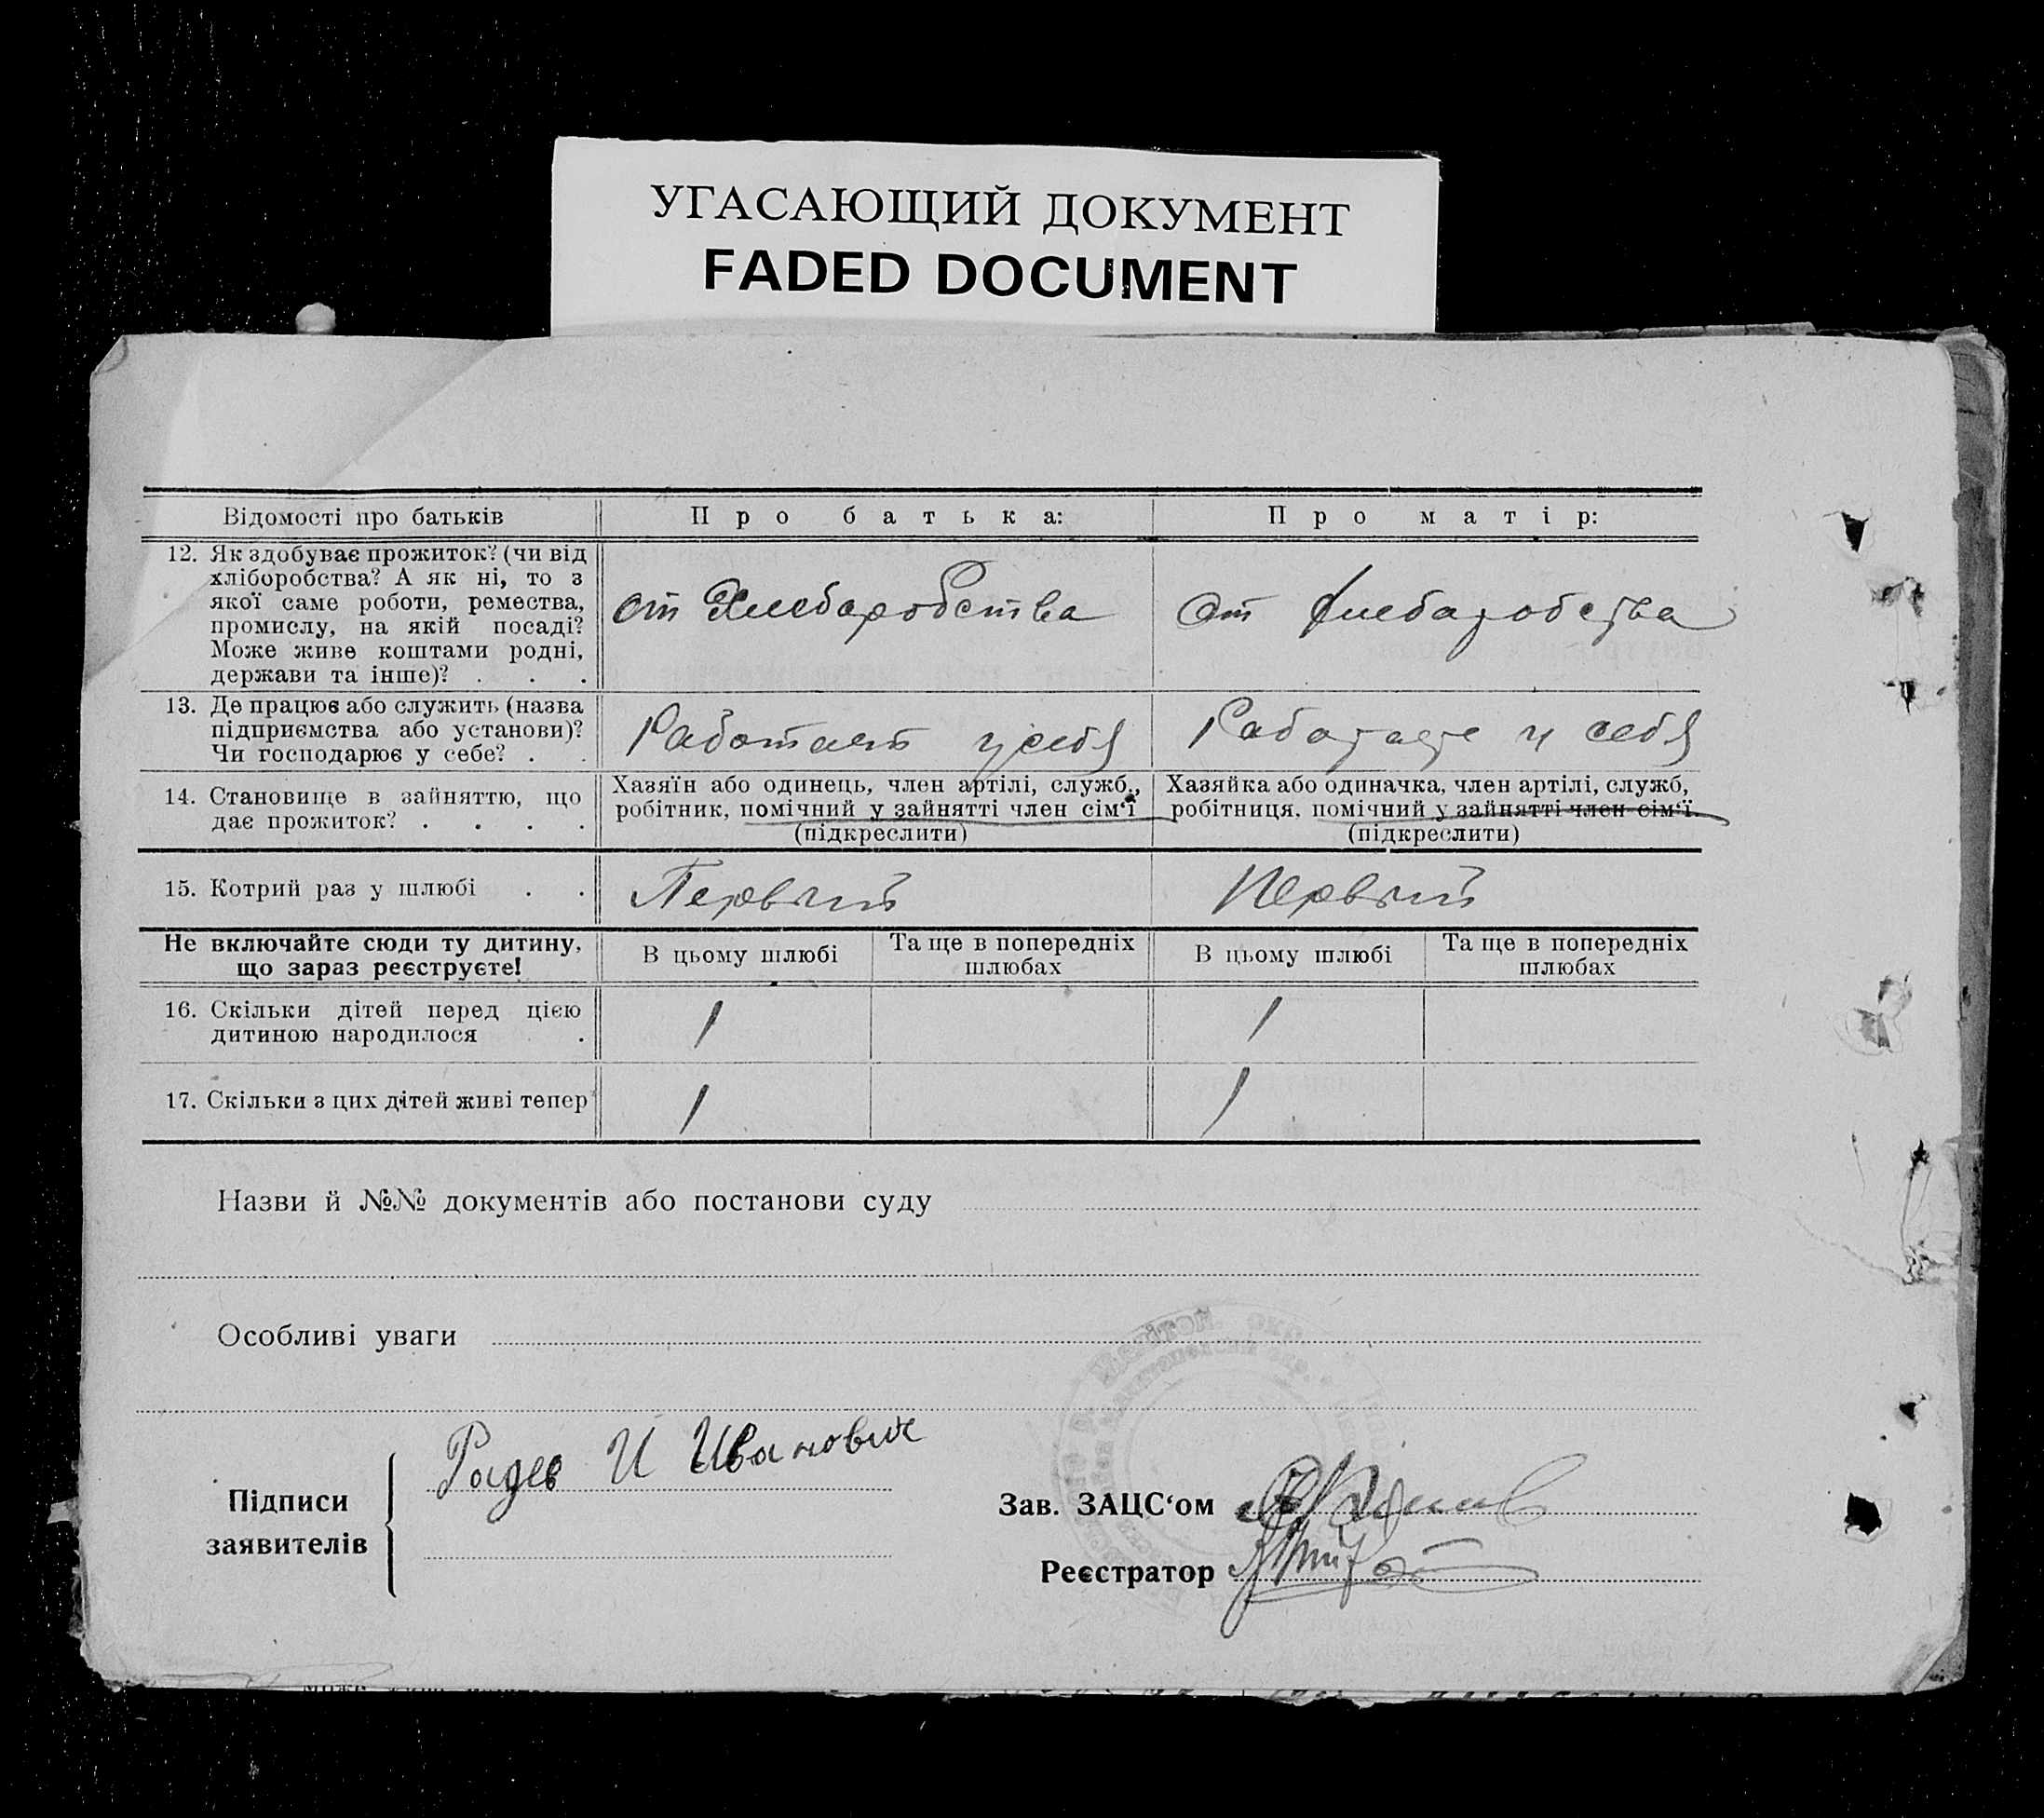 УГАСАЮЩИЙ ДОКУМЕНТ
FADED DOCUMENT
Відомості про батьків
Про батька:
Про матір:
12. Як здобуває прожиток? (чи від
хліборобства? А як ні, то з
якої саме роботи, ремества,
промислу, на якій посаді?
Може живе коштами родні,
держави та інше)? . . .
от Хлебаробства
От хлебаробства
13. Де працює або служить (назва
підприємства або установи)?
Чи господарює у себе? . .
Работает у себя
Работае у себя
14. Становище в зайняттю, що
дає прожиток? . . . .
Хазяїн або одинець, член артілі, служб.,
робітник, помічний у зайнятті член сім'ї
(підкреслити)
Хазяйка або одиначка, член артілі, служб,
робітниця, помічний у зайнятті член сім'ї.
(підкреслити)
15. Котрий раз у шлюбі . .
Первый
Первый
Не включайте сюди ту дитину,
що зараз реєструєте!
В цьому шлюбі
Та ще в попередніх
шлюбах
В цьому шлюбі
Та ще в попередніх
шлюбах
16. Скільки дітей перед цією
дитиною народилося .
1
1
17. Скільки з цих дітей живі тепер
1
1
Назви й №№ документів або постанови суду
Особливі уваги
Підписи
заявителів
Радев И Иванович
Зав. ЗАЦС'ом
Реєстратор